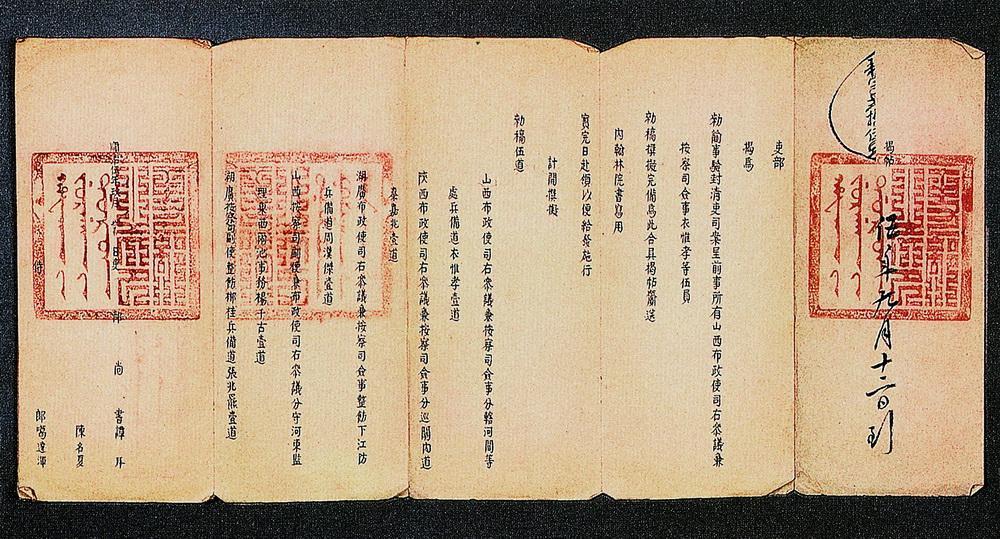 揭帖
伍年九月十二日到
吏部
揭爲
勑諭事驗封清吏司案呈前事所有山西布政使司右叅議兼
按察司僉事衣惟孝等伍員
勑稿撰擬完備爲此合具揭帖齎送
内翰林院書寫用
寳完日赴領以便給發施行
計開撰擬
勑稿伍道
山西布政使司右叅議兼按察司僉事分轄河間等
處兵備道衣惟孝壹道
陝西布政使司右叅議兼按察司僉事分巡關内道
秦嘉兆壹道
湖廣布政使司右叅議兼按察司僉事整飭下江防
兵備道周漢傑壹道
山西按察司副使兼布政使司右叅議分守河東監
理東西兩池事務楊千古壹道
湖廣按察司副使整飭郴桂兵備道張兆羆壹道
順治伍年 月 日
尚書譚
陳名夏